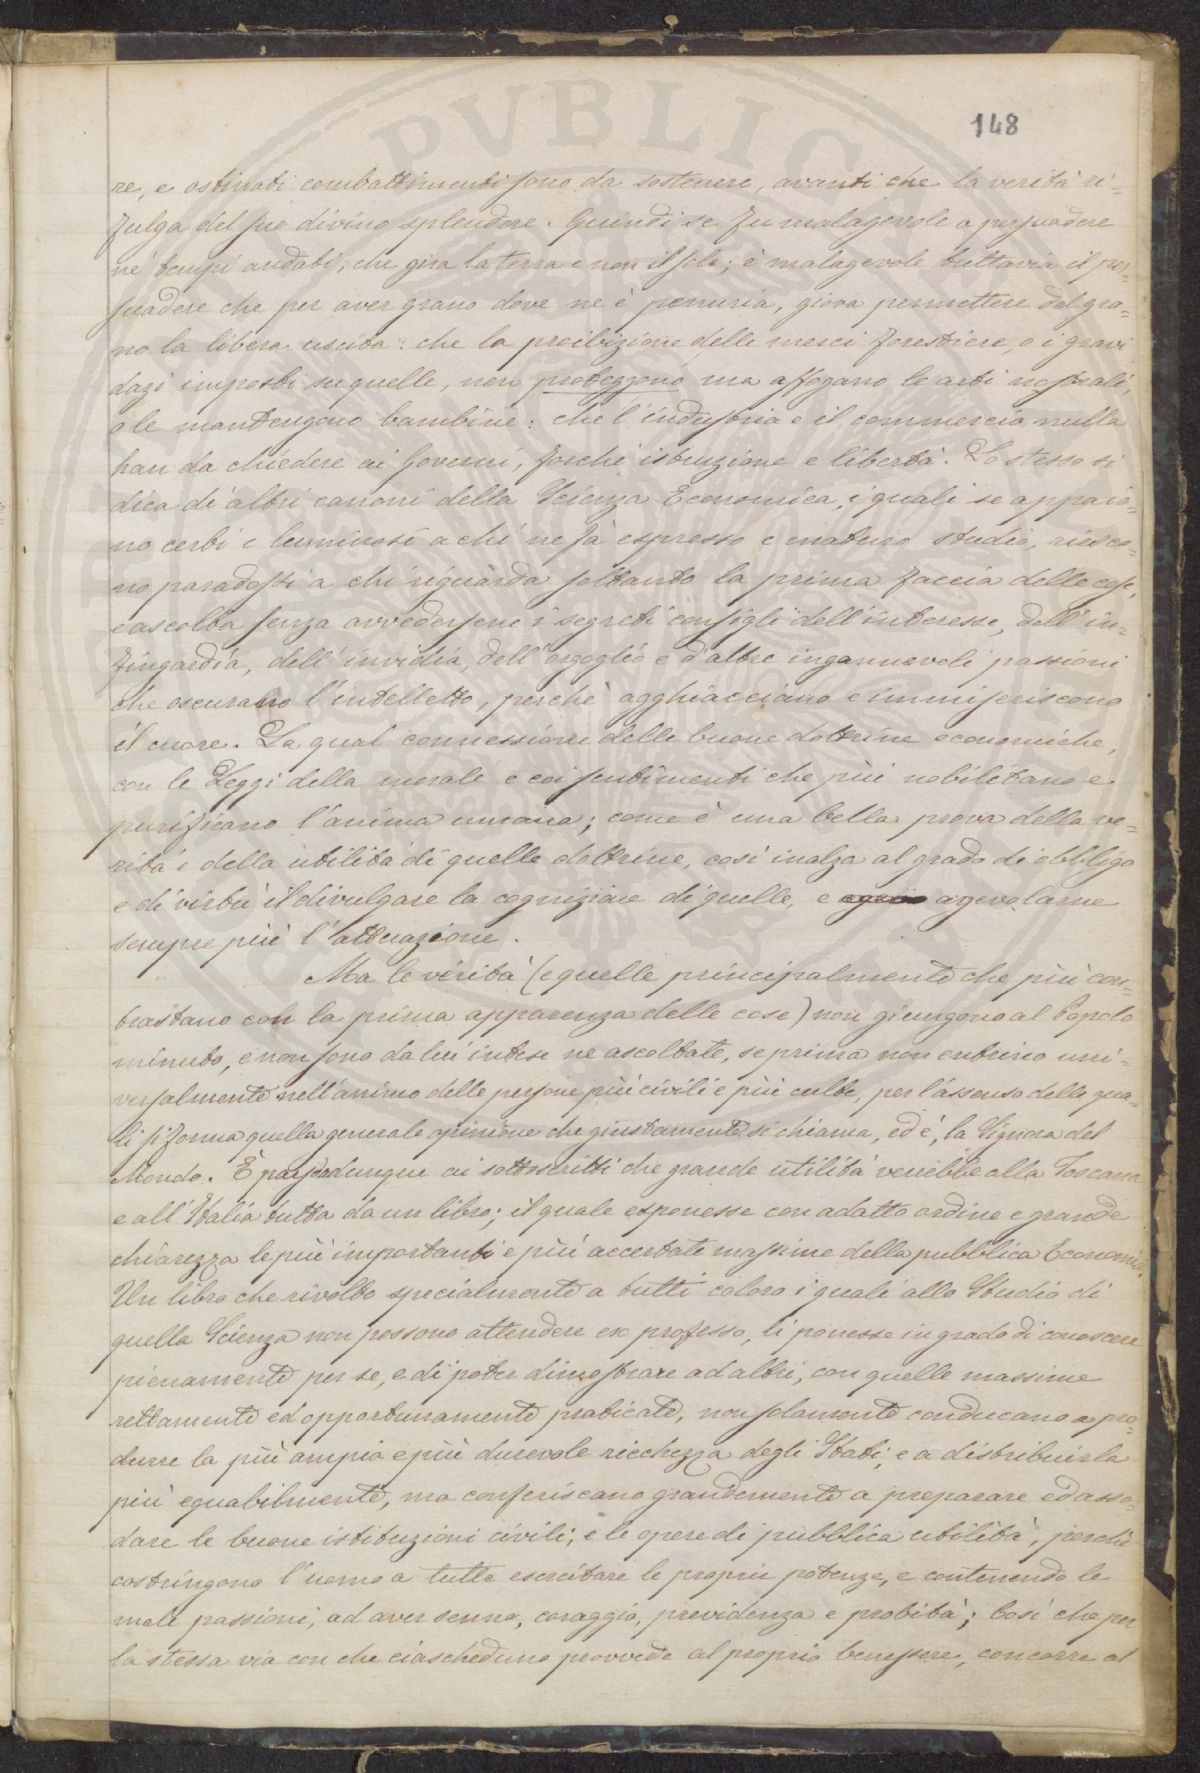 PVBLIC
148
re, e ostinati combattimenti sono da sostenere, avanti che la verità ri-
fulga del suo divino splendore. Quindi se fu malagevole a persuadere
ne' tempi andati, che gira la terra e non il sole; è malagevole tuttavia il per-
suadere che per aver grano dove ne è penuria, giova permettere del gra-
no la libera uscita: che la proibizione delle merci forestiere, o i gravi
dazi imposti su quelle, non proteggono ma affogano le arti nostrali,
o le mantengono bambine: che l'industria e il commercio nulla
han da chiedere ai Governi, forchè istruzione e libertà. Lo stesso si
dica di altri canoni della Scienza Economica, i quali se appaio-
no certi e luminosi a chi ne fà espresso e maturo studio, riesco-
no paradossi a chi riguarda soltanto la prima faccia delle cose,
e ascolta senza avvedersene i segreti consigli dell'interesse, dell'in-
fingardia, dell'invidia, dell'orgoglio e d'altre ingannevoli passioni
che oscurano l'intelletto, perchè agghiacciano e immiseriscono
il cuore. La qual connessione delle buone dottrine economiche,
con le Leggi della morale e coi sentimenti che più nobilitano e
purificano l'anima umana; come è una bella prova della ve-
rità e della utilità di quelle dottrine, così inalza al grado di obbligo
e di virtù il divulgare la cognizione di quelle, e agevolarne
sempre più l'attuazione.
Ma le verità (e quelle principalmente che più con-
trastano con la prima apparenza delle cose) non giungono al Popolo
minuto, e non sono da lui intese ne ascoltate, se prima non entrino uni-
versalmente nell'animo delle persone più civili e più culte, per l'assenso delle qua-
li si forma quella generale opinione che giustamente si chiama, ed è, la Signora del
Mondo. È parso dunque ai sottoscritti che grande utilità verrebbe alla Toscana
e all'Italia tutta da un libro; il quale esponesse con adatto ordine e grande
chiarezza le più importanti e più accertate massime della pubblica Economia.
Un libro che rivolto specialmente a tutti coloro i quali allo Studio di
quella Scienza non possono attendere ex professo, li ponesse in grado di conoscere
pienamente per se, e di poter dimostrare ad altri, con quelle massime
rettamente ed opportunamente praticate, non solamente conducano a pro-
durre la più ampia e più durevole ricchezza degli Stati, e a distribuirla
più equabilmente, ma conferiscano grandemente a preparare ed asso-
dare le buone istituzioni civili; e le opere di pubblica utilità, perchè
costringono l'uomo a tutte esercitare le proprie potenze, e contenendo le
male passioni, ad aver senno, coraggio, previdenza e probità; Così che per
la stessa via con che ciascheduno provvede al proprio benessere, concorre al